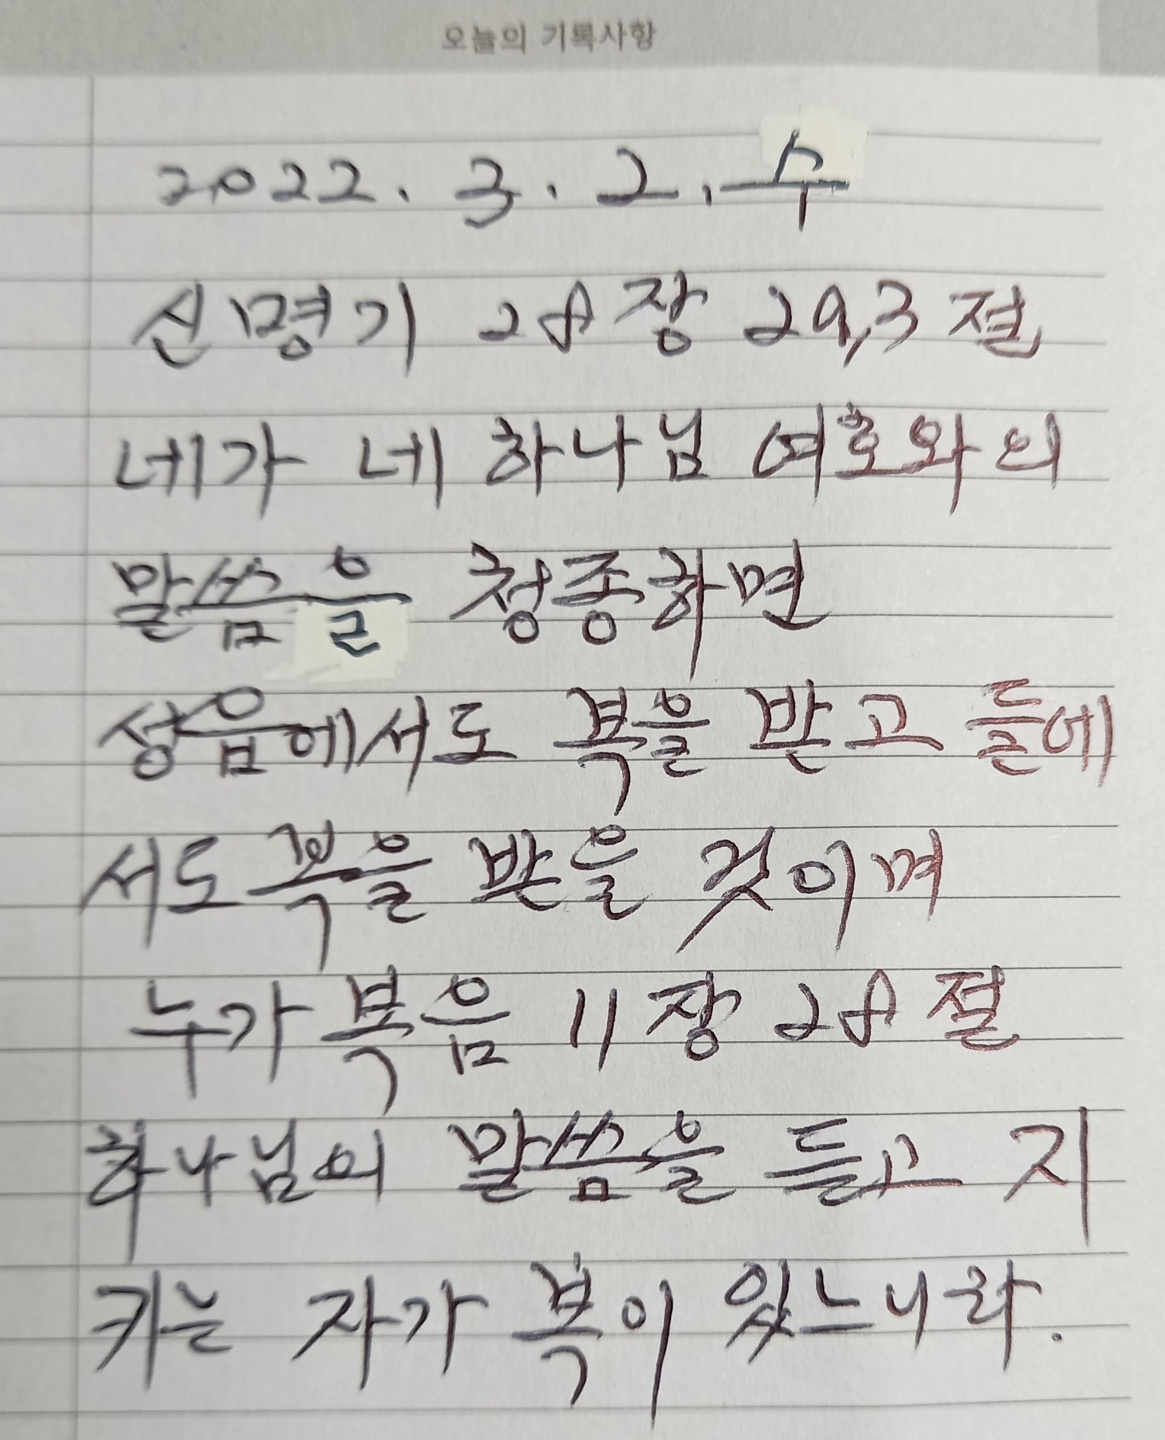 오늘의 기록사항
2022. 3. 2. 수
신명기 28장 29,3절
네가 네 하나님 여호와의
말씀을 청종하면
성읍에서도 복을 받고 들에
서도 복을 받을 것이며
누가 복음 11장 28절
하나님의 말씀을 듣고 지
키는 자가 복이 있느니라.